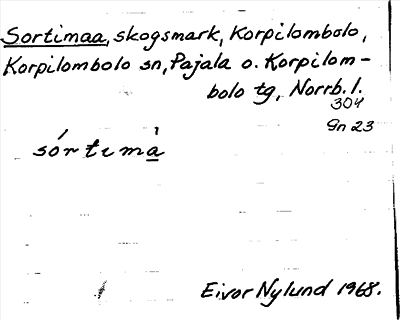 Sortimaa, skogsmark, Korpilombolo,
Korpilombolo sn, Pajala o. Korpilom-
bolo tg, Norrb. l.
304
Gn 23
sórtimà
Eivor Nylund 1968.